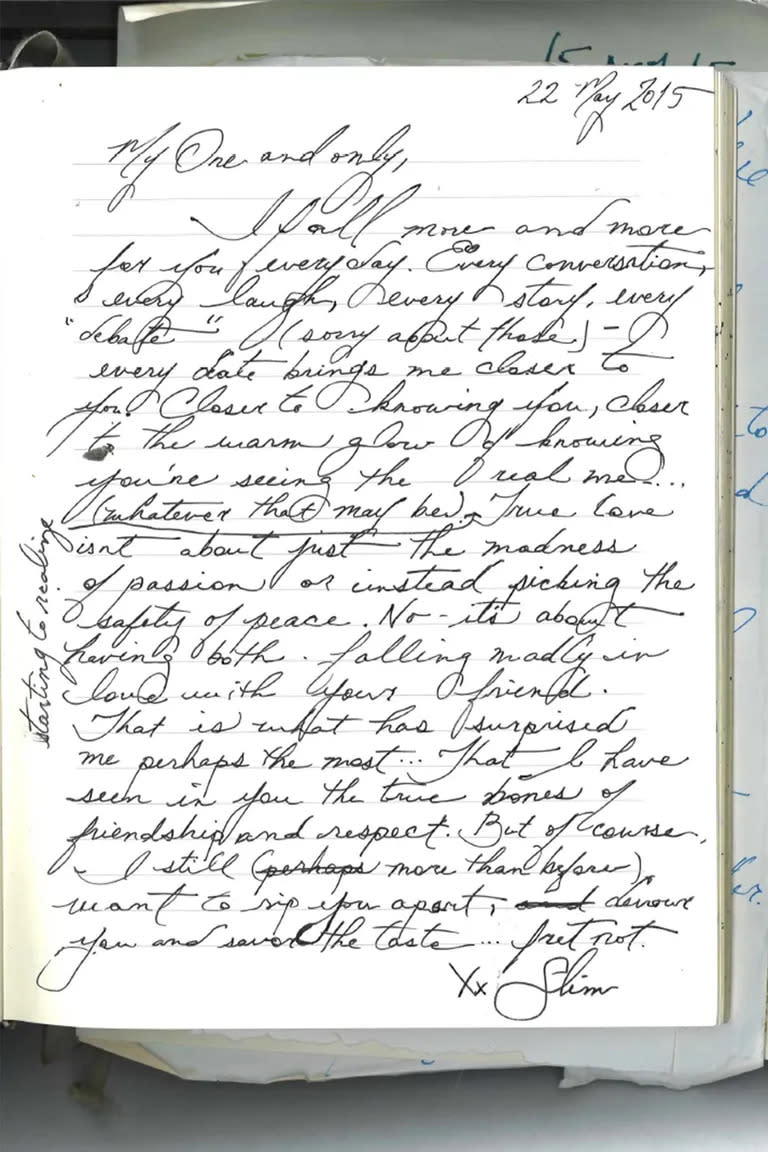 22 May 2015
My One and only,
I fall more and more
for you everyday. Every conversation,
every laugh, every story, every
"debate" (sorry about those) –
every date brings me closer to
you. Closer to knowing you, closer
to the warm glow of knowing
you're seeing the real me...
(whatever that may be). True love
isnt about just the madness
of passion or instead picking the
safety of peace. No - it's about
having both. falling madly in
love with your friend.
That is what has surprised
me perhaps the most... That I have
seen in you the true bones of
friendship and respect. But of course,
I still (perhaps more than before)
want to rip you apart, and devour
you and savor the taste... fret not.
Xx Slim
starting to realize
to